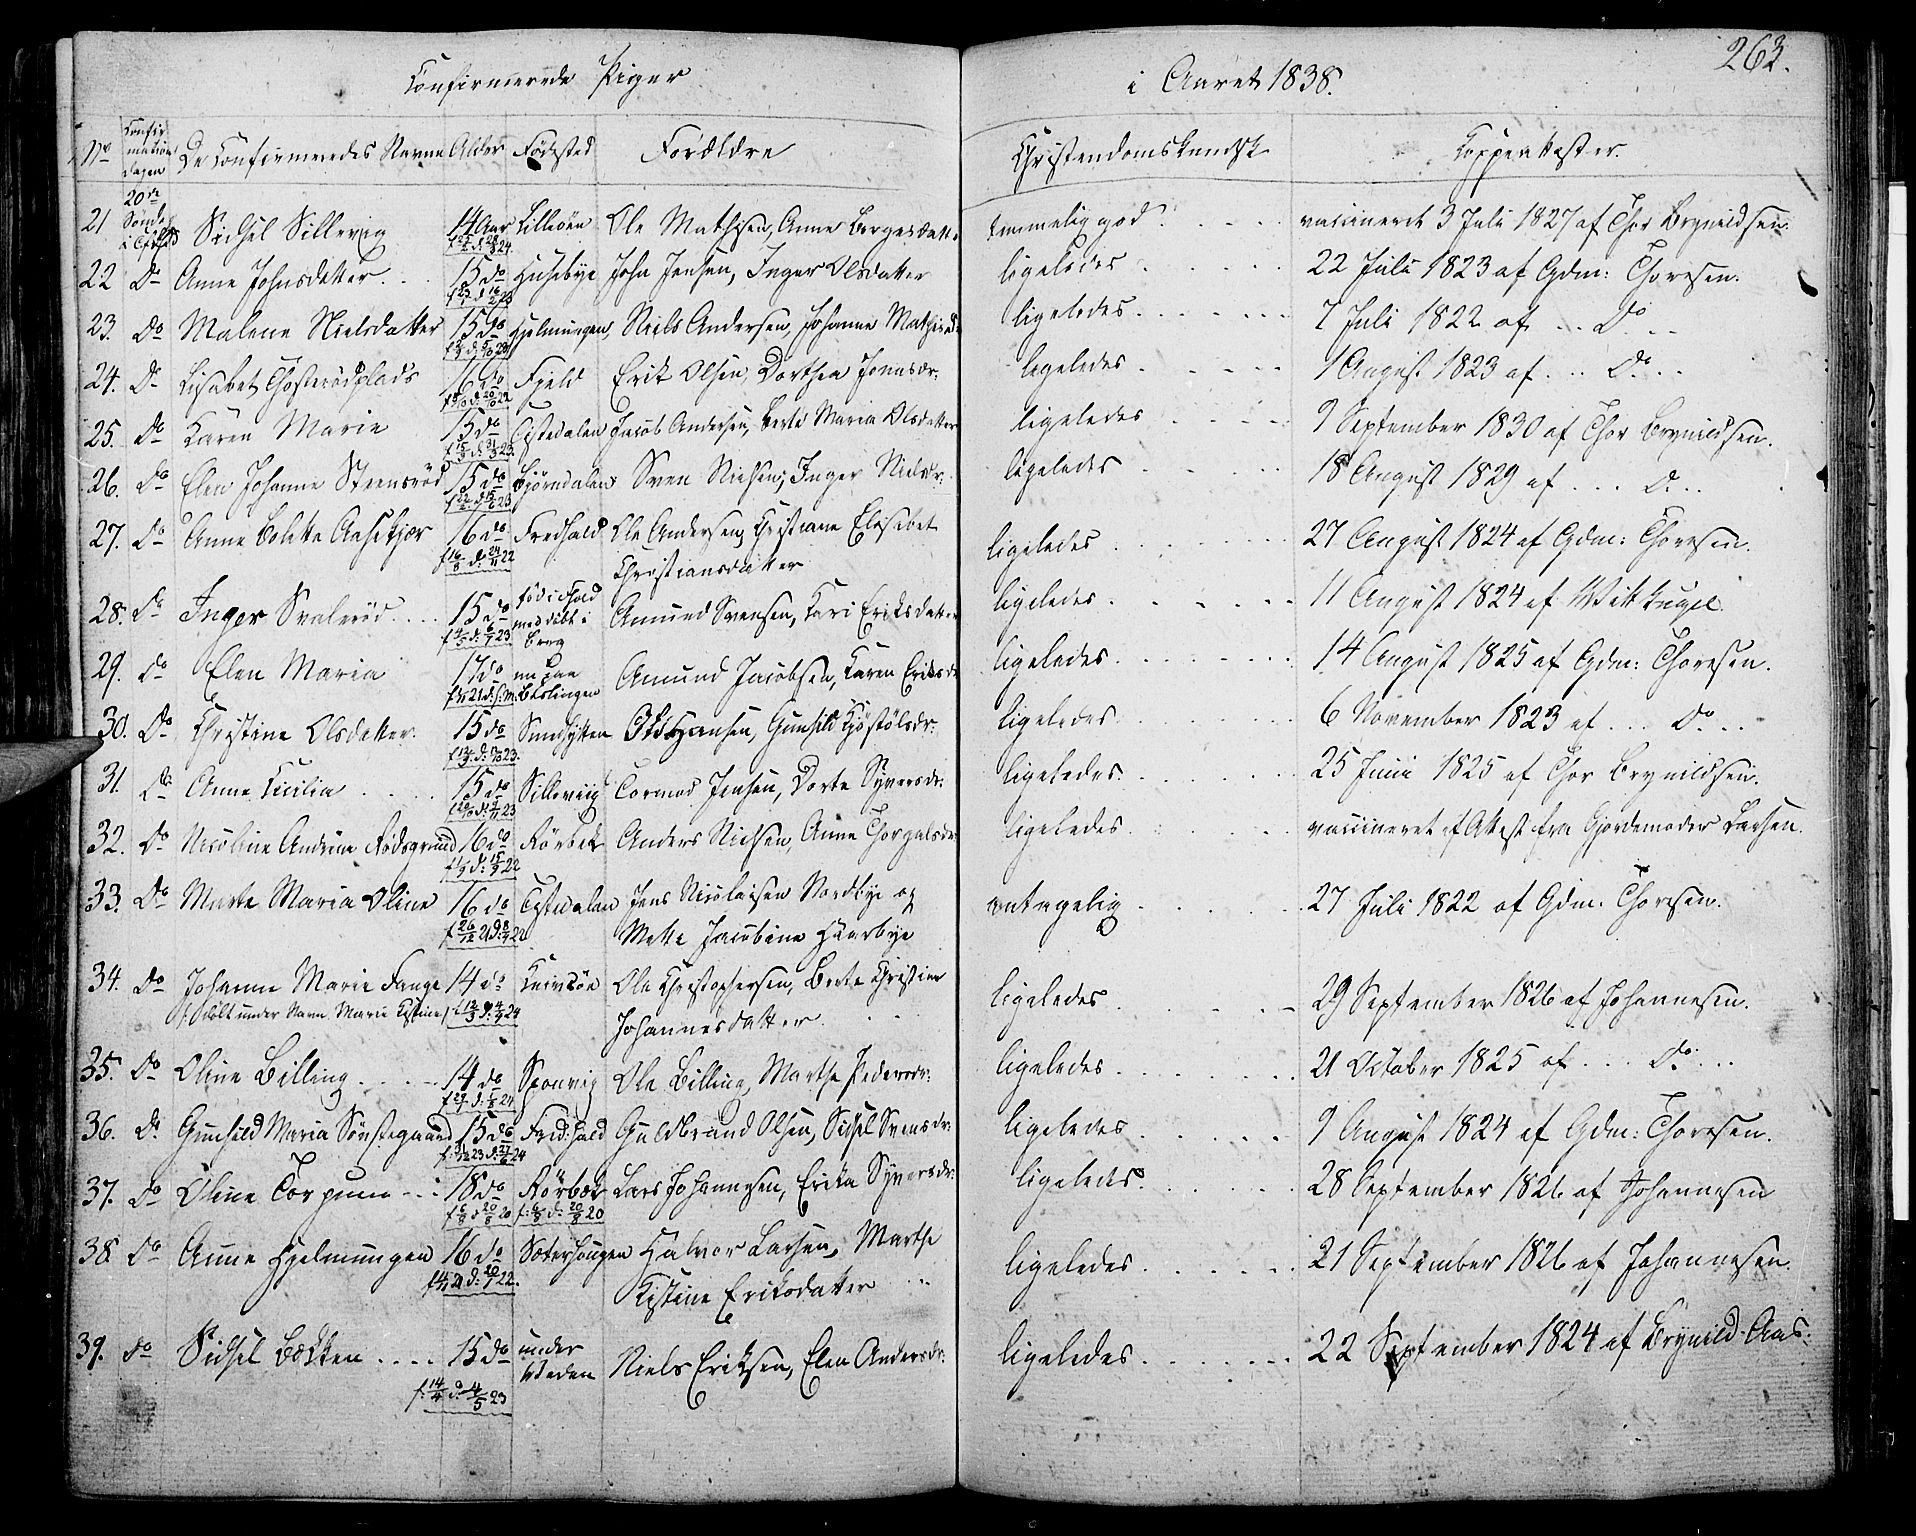 263.
Confirmerede Piger i Aaret 1838.
No Confirmations dagen De Confirmeredes Navne Alder Fødested Forældre Christendomskundsk Koppeattester.
21 20de Sønd: Sidsel Sillevig 14 Aar Lilleøen Ole Mathisen, Anne Borgersdatt. temmelig god vaccineret 3 Juli 1827 af Thor Brynildsen.
22 Do Anne Johnsdatter 15 do Husebye John Jensen, Inger Olsdatter ligeledes 22 Juli 1823 af Gdm: Thoresen.
23. Do Malene Nielsdatter 15 do Hjelmungen, Niels Andersen, Johanne Mathisd: ligeledes 7 Juli 1822 af Do
24. Do Lisabet Thosterødplads 16 do Fjeld Erik Olsen, Dorthea Jonasdr: ligeledes 1 August 1823 af Do
25. Do Karen Marie 15 do Tistedalen Jacob Andersen, Berte Maria Olsdatter ligeledes 9 September 1830 af Thor Brynildsen.
26. Do Elen Johanne Steensrød 15 do Bjørndalen Sven Nielsen, Inger Nielsdr: ligeledes 18 August 1829 af D
27. Do Anne Bolette Aasekjær 16 do Fredhald Ole Andersen, Christiane Elisabet
f 16/8 d: 24/11 22 Christiansdatter ligeledes 27 August 1824 af Gdm: Thoresen.
28. Do Inger Svalerød 15 do fød i Hald med døbt i Berg Amund Svensen, Kari Eriksdatter ligeledes 11 August 1824 af Wittkugel
29. Do Elen Maria 17 do nu paa Amund Jacobsen, Karen Eriksd ligeledes 14 August 1825 af Gdm: Thoresen.
30. Do Christine Olsdatter. 15 do Sundhytten Ole Hansen, Gunhild Kjøstølsdr: ligeledes 6 November 1823 af Do
31. Do Anne Cicilia 15 do Sillevig Tormod Jensen, Dorte Syversdr: ligeledes. 25 Juni 1825 af Thor Brynildsen.
32. Do Nicoline Andrine Rødsgrund 16 do Rørbek Anders Nielsen, Anne Thorgalsdr: ligeledes vaccineret ef Attest fra Gjordemoder Larsen.
33. Do Marte Maria Oline 16 do Tistedalen Jens Nicolaisen Nordbye og
Mette Jacobine Haarbye antagelig 27 Juli 1822 af Gdm. Thoresen.
34. Do Johanne Marie Fange 14 do Knivsøe Ole Christophersen, Berte Christine
døbt under Navn Marie Cistine Johannesdatter ligeledes 29 September 1826 af Johannesen.
35. Do Oline Billing 14 do Sponvig Ole Billing, Marthe Pedersdr: ligeledes 21 October 1825 af Do
36. Do Gunhild Maria Sønstegaard 15 do Fred:hald Guldbrand Olsen, Sidsel Svensdr: ligeledes 9 August 1824 af Gdm: Thoresen.
37. Do Oline Torpum 18 do Rørbek Lars Johannesen, Erika Syversdr: ligeledes. 28 September 1826 af Johannesen
f: 6/8 d: 20/8 20
38. Do Anne Hjelmungen 16 do Sæterhougen Halvor Larsen, Marthe
Kistine Eriksdatter ligeledes 21 September 1826 af Johannesen.
39. Do Sidsel Bækken 15 do under Veden Niels Eriksen, Elen Andersdr: ligeledes 22 September 1824 af Brynild Aas.
f: 14/4 d: 4/5 23